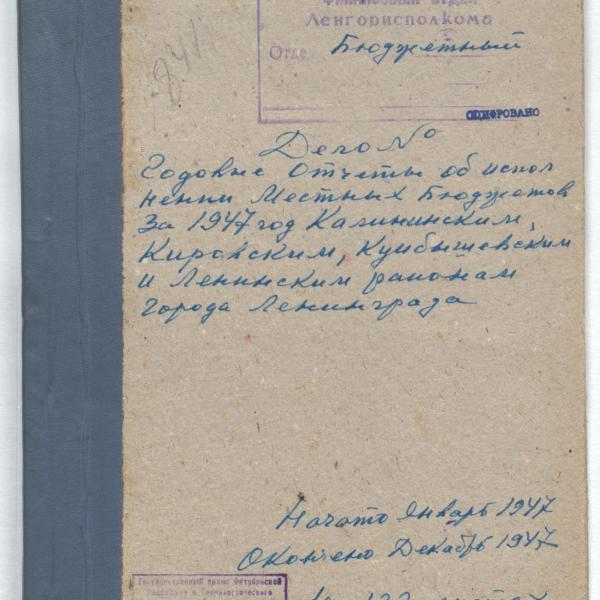 841
Финансовый отдел
Ленгорисполкома
Отде Бюджетный
ОЦИФРОВАНО
Дело №
Годовые отчеты об испол
нении Местных Бюджетов
За 1947 год Калининским,
Кировским, Куйбышевским
и Ленинским районам
города Ленинграда
Начато Январь 1947
Окончено Декабрь 1947
Государственный архив Октябрьской
Революции и Социалистического
На 122 листах